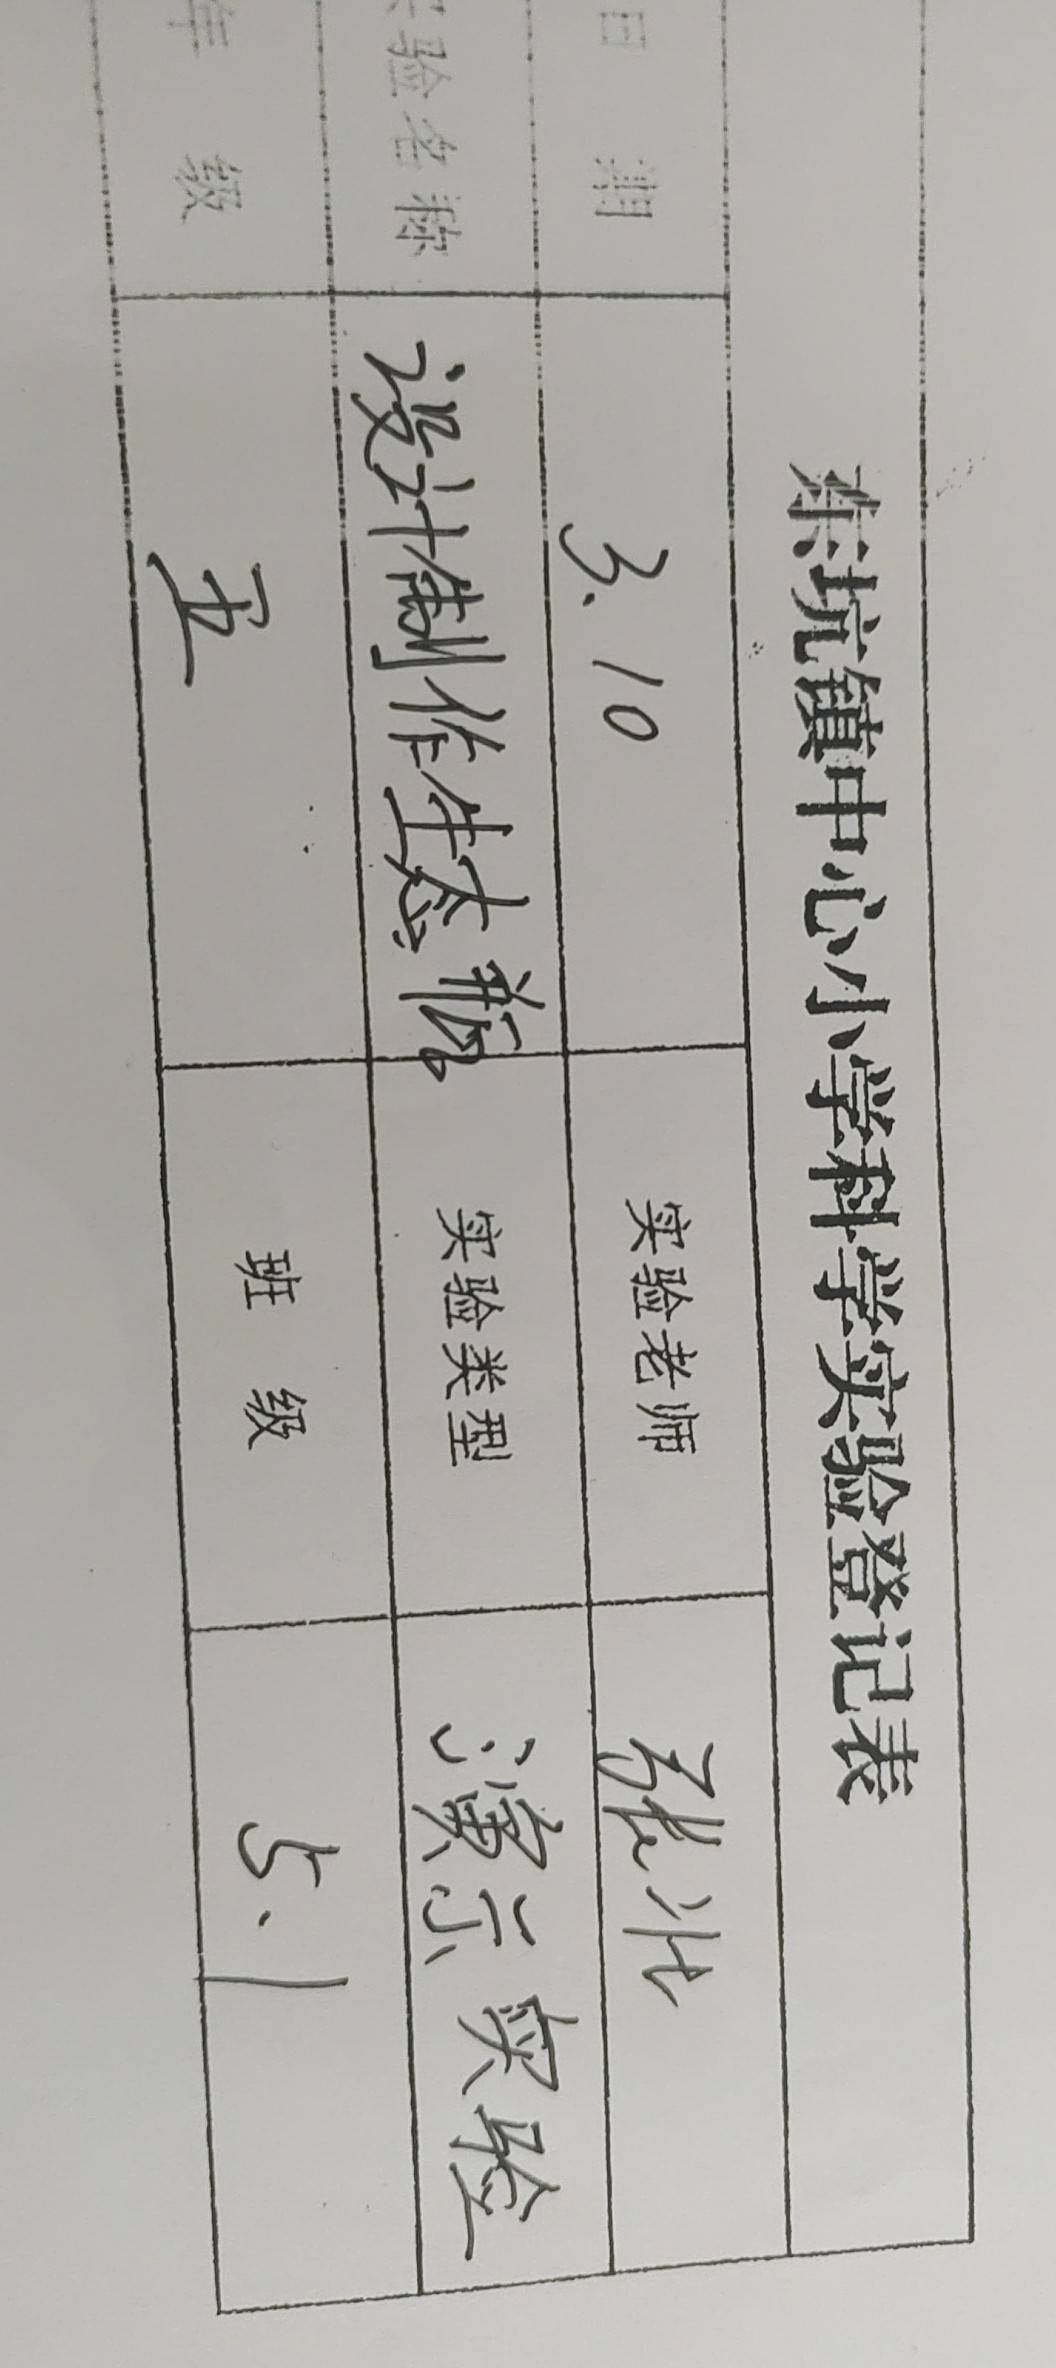 东坑镇中心小学科学实验登记表
日 期 3.10 实验老师 张壮
实验名称 设计制作生态瓶 实验类型 演示实验
年 级 五 班 级 5.1